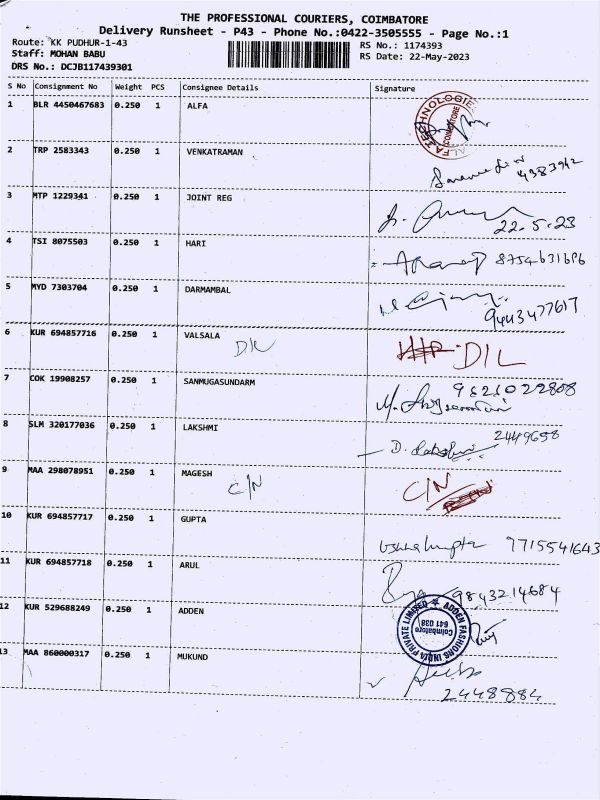 THE PROFESSIONAL COURIERS, COIMBATORE
Delivery Runsheet - P43 - Phone No.:0422-3505555 - Page No.:1
Route: KK PUDHUR-1-43
RS No.: 1174393
Staff: MOHAN BABU
RS Date: 22-May-2023
DRS No.: DCJB117439301
S No Consignment No Weight PCS Consignee Details Signature
1 BLR 4450467683 0.250 1 ALFA
ALFA TECHNOLOGIES
COIMBATORE
2 TRP 2583343 0.250 1 VENKATRAMAN
4383942
3 MTP 1229341 0.250 1 JOINT REG
22-5-23
4 TSI 8075503 0.250 1 HARI
8754631686
5 MYD 7303704 0.250 1 DARMAMBAL
9443477617
6 KUR 694857716 0.250 1 VALSALA
D/L D/L
7 COK 19908257 0.250 1 SANMUGASUNDARM
8 SLM 320177036 0.250 1 LAKSHMI
D. Lakshmi 2449698
9 MAA 298078951 0.250 1 MAGESH
C/N C/N
10 KUR 694857717 0.250 1 GUPTA
Usha Gupta 9715541643
11 KUR 694857718 0.250 1 ARUL
9843214684
12 KUR 529688249 0.250 1 ADDEN
ADDEN FASHIONS INDIA PRIVATE LIMITED
Coimbatore
641 038
13 MAA 860000317 0.250 1 MUKUND
2448884